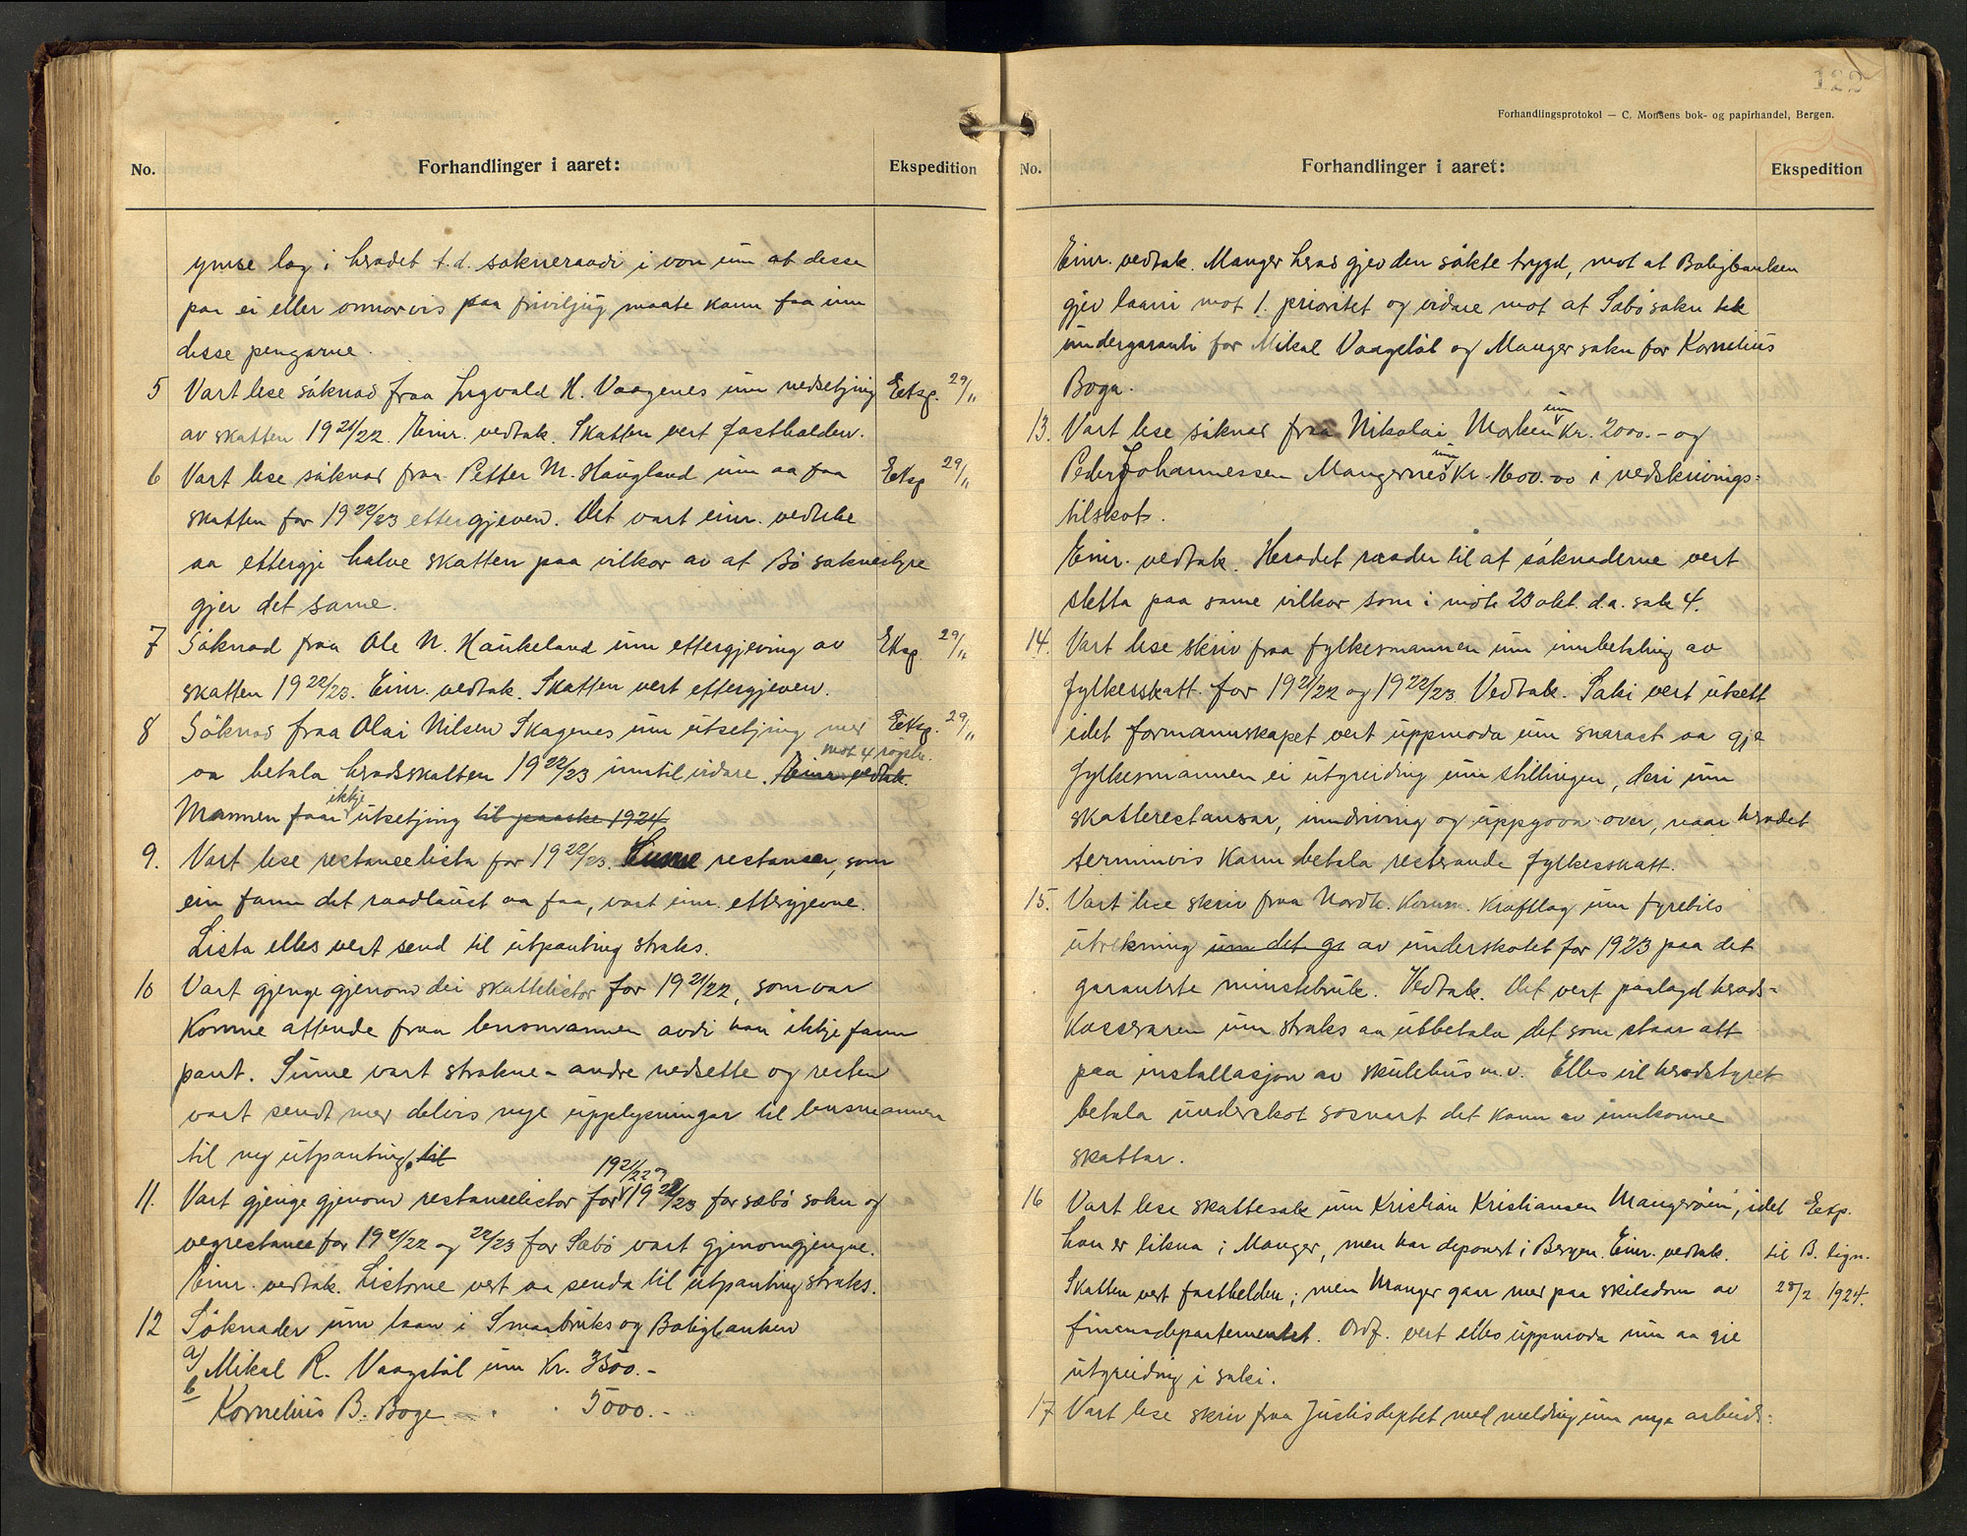 No.
Forhandlinger i aaret:
Ekspedition
ymse lag i hradet t.d. sokneraadi i von um at desse
paa ei eller onnorvis paa friviljug maate kann faa inn
desse pengarne.
5 Vart lese søknad fraa Ingvald H. Vaagenes um nedsetjing Eksp. 29/11
av skatten 1921/22. Einr. vedtak. Skatten vert fastholden.
6 Vart lese søknad fraa Petter M. Haugland um aa faa Eksp 29/11
skatten for 1922/23 ettergjeven. Det vart einr. vedteke
aa ettergje halve skatten paa vilkor av at Bø soknestyre
gjer det same.
7 Søknad fraa Ole N. Haukeland um ettergjeving av Eksp. 29/11
skatten 1922/23. Einr. vedtak. Skatten vert ettergjeven.
8 Søknad fraa Olai Nilsen Skagenes um utsetjing med Eksp. 29/11
mot 4 røyster.
aa betala hradsskatten 1922/23 inntil vidare. Einr. vedtak.
ikkje
Mannen faar utsetjing til paaske 1924
9. Vart lese restanselista for 1922/23. Sume restanser, som
ein fann det raadlaust aa faa, vart einr. ettergjevne.
Lista elles vert send til utpanting straks.
10 Vart gjenge gjenom dei skattelistor for 1921/22, som var
komne attende fraa lensmannen avdi han ikkje fann
pant. Sume vart strokne - andre nedsette og resten
vart sendt med delvis nye upplysningar til lensmannen
til ny utpanting. til
1921/22 og
11. Vart gjenge gjenom restanselistor for 1922/23 for Sæbø sokn og
vegrestanse for 1921/22 og 22/23 for Sæbø vart gjenomgjengne.
Einr. vedtak. Listorne vert aa senda til utpanting straks.
12 Søknader um laan i Smaabruks og Boligbanken
a) Mikal R. Vaagstøl um kr. 3500.-
b Kornelius B. Boge - . . 5000.-
122
Forhandlingsprotokol — C. Monsens bok- og papirhandel, Bergen.
No.
Forhandlinger i aaret:
Ekspedition
Einr. vedtak. Manger hrad gjev den søkte trygd, mot at Boligbanken
gjev laani mot 1. prioritet og vidare mot at Sæbø sokn tek
undergaranti for Mikal Vaagstøl og Manger sokn for Kornelius
Boge.
um
13. Vart lese søknad fraa Nikolai Morken kr. 2000.- og
um
Peder Johannessen Mangernes kr. 1600.00 i nedskrivings=
tilskot.
Einr. vedtak. Heradet raader til at søknaderne vert
stetta paa same vilkor som i møte 23 okt. d.a. sak 4.
14. Vart lese skriv fraa fylkesmannen um innbetaling av
fylkesskatt for 1921/22 og 1922/23. Vedtak. Saki vert utsett
idet formannskapet vert uppmoda um snarast aa gje
fylkesmannen ei utgreiding um stillingen, deri um
skatterestansar, inndriving og uppgova over, naar hradet
terminvis kann betala resterande fylkesskatt.
15. Vart lese skriv fraa Nordh. Komm. Kraftlag um fyrebils
utrekning um det ga av underskotet for 1923 paa det
garanterte minstebruk. Vedtak. Det vert paalagd hrads=
kasseraren um straks aa utbetala det som staar att
paa installasjon av skulehus m.v. Elles vil hradstyret
betala underskot sosnart det kann av innkomne
skattar.
16 Vart lese skattesak um Kristian Kristiansen Mangerøin, idet Eksp.
han er likna i Manger, men har deponert i Bergen. Einr. vedtak. til B. lign.
Skatten vert fasthelden; men Manger gaar med paa skilsdom av 28/2 1924.
finansdepartementet. Ordf. vert elles uppmoda um aa gje
utgreiding i saki.
17 Vart lese skriv fraa Justisdeptet med melding um nye arbeids=